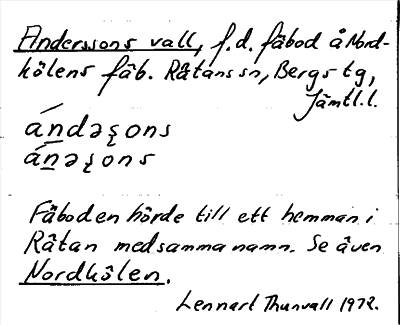 Anderssons vall, f.d. fäbod å Nord-
hölens fäb. Rätans sn, Bergs tg,
Jämtl.l.
ándəʂons
ánəʂons
Fäboden hörde till ett hemman i
Rätan med samma namn. Se även
Nordhölen.
Lennart Thunvall 1972.